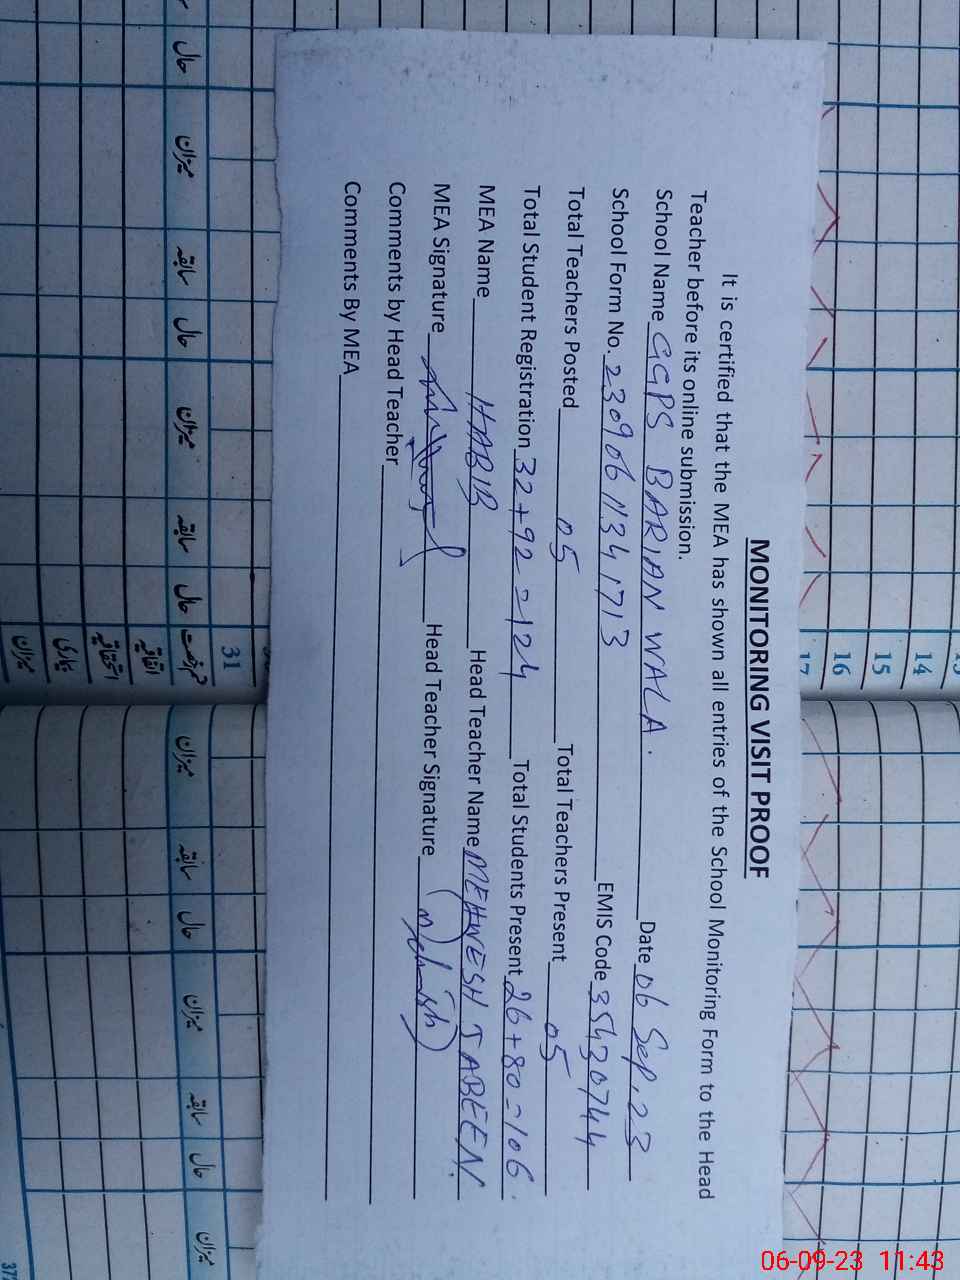 MONITORING VISIT PROOF
It is certified that the MEA has shown all entries of the School Monitoring Form to the Head
Teacher before its online submission.
School Name GGPS BARIAN WALA. Date 06 Sep, 23
School Form No. 230906 1134 1713 EMIS Code 35430744
Total Teachers Posted 05 Total Teachers Present 05
Total Student Registration 32+92=124 Total Students Present 26+80=106.
MEA Name HABIB Head Teacher Name MEHWESH JABEEN
MEA Signature Head Teacher Signature
Comments by Head Teacher
Comments By MEA
14
15
16
17
31
حال
میزان
سابقہ
حال
میزان
سابقہ
حال
میزان
سابقہ
حال
میزان
سابقہ
حال
میزان
06-09-23 11:43